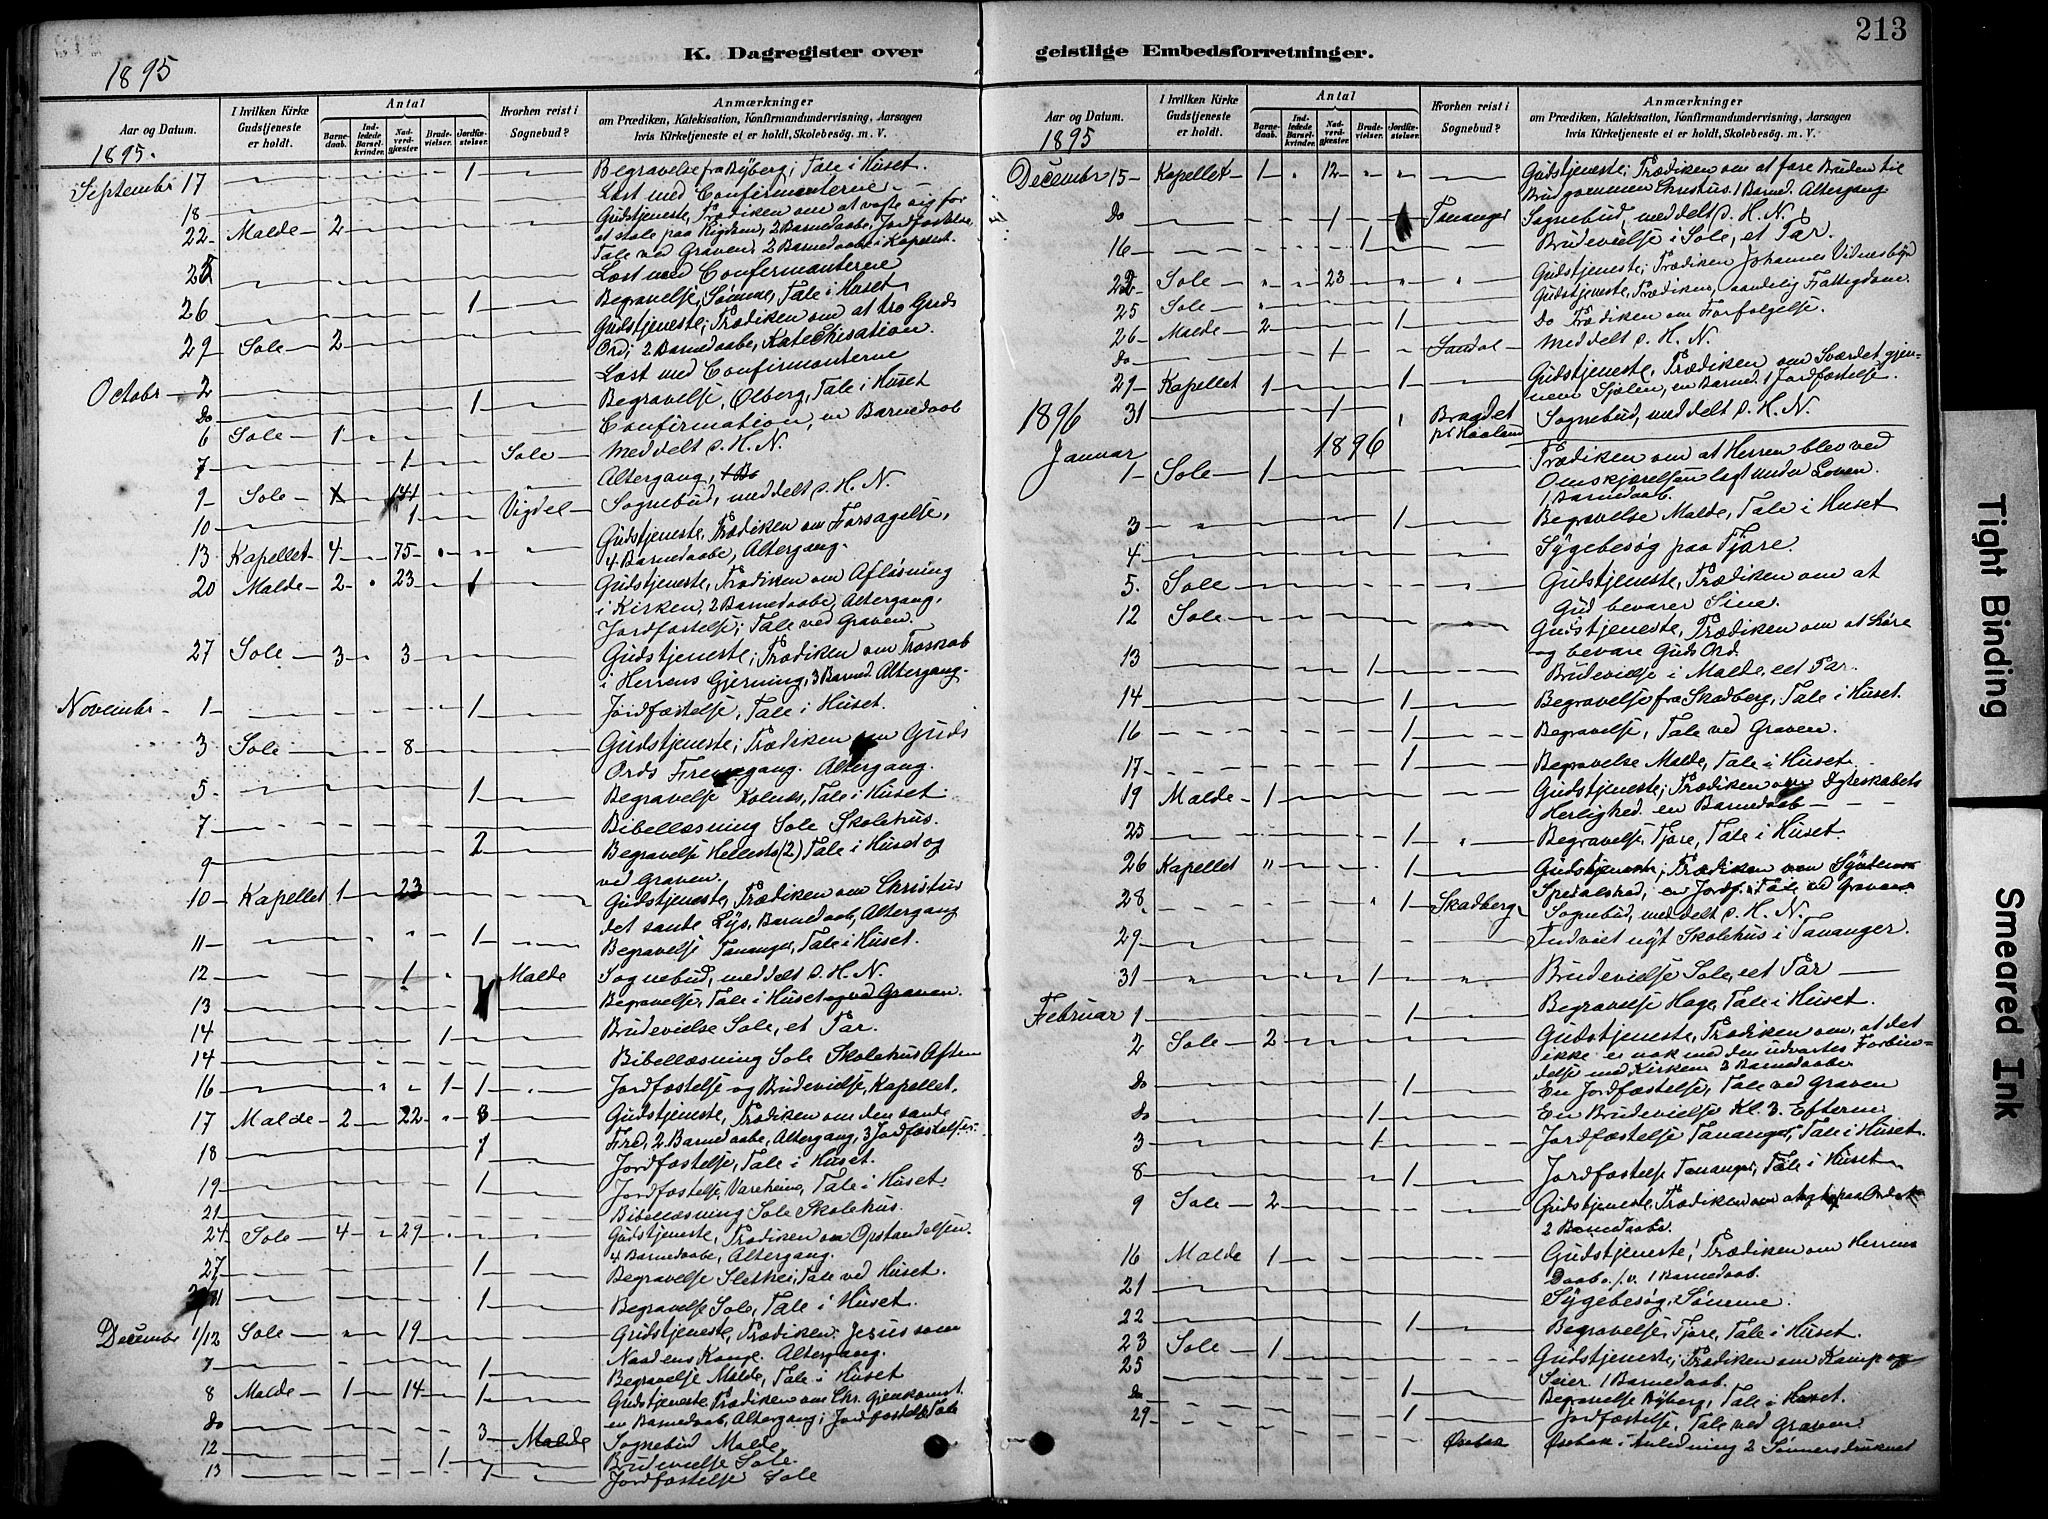 K. Dagregister over
1895
Aar og Datum.
1895.
I hvilken Kirke Gudstjeneste er holdt.
Antal
Barne-daab.
Ind-ledede Barsel-kvinder.
Nad-verd-gjæster
Brude-vielser.
Jordfæ-stelser.
Hvorhen reist i Sognebud?
Anmærkninger
om Prædiken, Katekisation, Konfirmandundervisning, Aarsagen
hvis Kirketjeneste ei er holdt, Skolebesøg. m. V.
Septembr 17 1 Begravelse fra Ryberg; Tale i Huset.
18 Læst med Confirmanterne
22 Malde 2 Gudstjeneste, Prædiken om at vogte sig for
at stole paa Rigdom, 2 Barnedaabe, Jordfæstelse,
Tale ved Graven, 2 Barnedaabe i Kapellet.
25 Læst med Confirmanterne
26 1 Begravelse, Sømme, Tale i Huset
29 Sole 2 Gudstjeneste; Prædiken om at tro Guds
Ord; 2 Barnedaabe, Katechisation.
Octobr 2 Læst med Confirmanterne
Do 1 Begravelse, Ølberg, Tale i Huset
6 Sole 1 Confirmation, en Barnedaab
7 1 Sole Meddelt s. H. N.
9 Sole 141 Altergang,
10 1 Vigdel Sognebud, meddelt s. H. N.
13 Kapellet 4 75 Gudstjeneste, Prædiken om Forsagelse,
4 Barnedaabe, Altergang.
20 Malde 2 23 1 Gudstjeneste, Prædiken om Afløsning
i Kirken, 2 Barnedaabe, Altergang,
Jordfæstelse; Tale ved Graven.
27 Sole 3 3 Gudstjeneste; Prædiken om Troskab
i Herrens Gjerning, 3 Barned. Altergang.
Novembr 1 1 Jordfæstelse, Tale i Huset.
3 Sole 8 Gudstjeneste; Prædiken om Guds
Ords Fremgang. Altergang.
5 1 Begravelse Kolnes, Tale i Huset.
7 Bibellæsning Sole Skolehus.
9 2 Begravelse Hellestø (2) Tale i Huset og
ved Graven.
10 Kapellet 1 23 Gudstjeneste, Prædiken om Christus
det sande Lys, Barnedaab, Altergang
11 1 Begravelse Tananger, Tale i Huset.
12 1 Malde Sognebud, meddelt s. H. N.
13 Begravelse, Tale i Huset og ved Graven.
14 1 Brudevielse Sole, et Par.
14 Bibellæsning Sole Skolehus Aften
16 1 1 Jordfæstelse og Brudevielse, Kapellet.
17 Malde 2 22 3 Gudstjeneste, Prædiken om den sande
Fred, 2 Barnedaabe, Altergang, 3 Jordfæstelser
18 1 Jordfæstelse, Tale i Huset.
19 1 Jordfæstelse, Vareheim, Tale i Huset
21 Bibellæsning Sole Skolehus.
24 Sole 4 29 Gudstjeneste, Prædiken om Opstandelsen.
4 Barnedaabe, Altergang.
27 1 Begravelse Slethei, Tale ved Huset.
1 Begravelse Sole, Tale i Huset.
Decembr 1/12 Sole 19 Gudstjeneste, Prædiken: Jesus som
Naadens Konge. Altergang.
7 1 Begravelse Malde, Tale i Huset
8 Malde 1 14 1 Gudstjeneste Prædiken om Chr. Gjenkomst
en Barnedaab, Altergang; Jordfæstelse Tale
Do 3 Malde Sognebud Malde.
12 1 Brudevielse Sole.
13 1 Jordfæstelse Sole
213
geistlige Embedsforretninger.
Aar og Datum.
1895
I hvilken Kirke Gudstjeneste er holdt.
Antal
Barne-daab.
Ind-ledede Barsel-kvinder.
Nad-verd-gjæster
Brude-vielser.
Jordfæ-stelser.
Hvorhen reist i Sognebud?
Anmærkninger
om Prædiken, Katekisation, Konfirmandundervisning, Aarsagen
hvis Kirketjeneste ei er holdt, Skolebesøg. m. V.
Decembr 15 Kapellet 1 12 Gudstjeneste; Prædiken om at føre Bruden til
Brudgommen Christus. 1 Barned. Altergang
Do 1 Tananger Sognebud, meddelt s. H. N.
16 1 Brudevielse i Sole, et Par.
22 Sole 23 Gudstjeneste; Prædiken Johannes Vidnesbyrd
25 Sole Gudstjeneste, Prædiken, aandelig Fattigdom.
26 Malde 2 1 Do Prædiken om Forfølgelse.
Do 1 Sandal Meddelt s. H. N.
29 Kapellet 1 1 Gudstjeneste, Prædiken om Sværdet gjen-
nem Sjælen, en Barned. 1 Jordfæstelse.
31 1 Sognebud, meddelt s. H. N.
1896
1896
Januar 1 Sole 1 Prædiken om at Herren blev ved
Omskjærelsen lagt under Loven.
1 Barnedaab.
3 1 Begravelse Malde, Tale i Huset
4 Sygebesøg paa Tjøre.
5. Sole Gudstjeneste, Prædiken om at
Gud bevarer Sine.
12 Sole Gudstjeneste, Prædiken om at høre
og bevare Guds Ord
13 1 Brudevielse i Malde, eet Par.
14 1 Begravelse fra Skadberg, Tale i Huset.
16 1 Begravelse, Tale ved Graven.
17 1 Begravelse Malde, Tale i Huset
19 Malde 1 Gudstjeneste; Prædiken om Ægteskabets
Herlighed en Barnedaab
25 1 Begravelse, Tjøre, Tale i Huset.
26 Kapellet " 1 Gudstjeneste; Prædiken om Syndens
Spedalskhed, en Jordf. Tale ved Graven
28 1 Skadberg Sognebud, meddelt s. H. N.
29 Indviet nyt Skolehus i Tananger.
31 1 Brudevielse Sole, eet Par
Februar 1 1 Begravelse Hage, Tale i Huset.
2 Sole 2 Gudstjeneste, Prædiken om, at det
ikke er nok med den udvortes Forbin-
delse med Kirken 2 Barnedaabe
Do 1 En Jordfæstelse, Tale ved Graven
Do 1 En Brudevielse Kl. 3. Efterm.
3 1 Jordfæstelse Tananger, Tale i Huset.
8 1 Jordfæstelse Tananger, Tale i Huset
9 Sole 2 Gudstjeneste, Prædiken om
2 Barnedaabe.
16 Malde 1 Gudstjeneste, Prædiken om Herrens
Daab 1 Barnedaab.
21 Sygebesøg, Sømme.
22 1 Begravelse, Tjøre, Tale i Huset.
23 Sole 1 Gudstjeneste; Prædiken om Kamp og
Seier. 1 Barnedaab.
25 1 Begravelse Ryberg, Tale i Huset.
Do 1 Jordfæstelse, Tale ved Graven
29 i Anledning 2 Sønners
Tight Binding
Smeared Ink